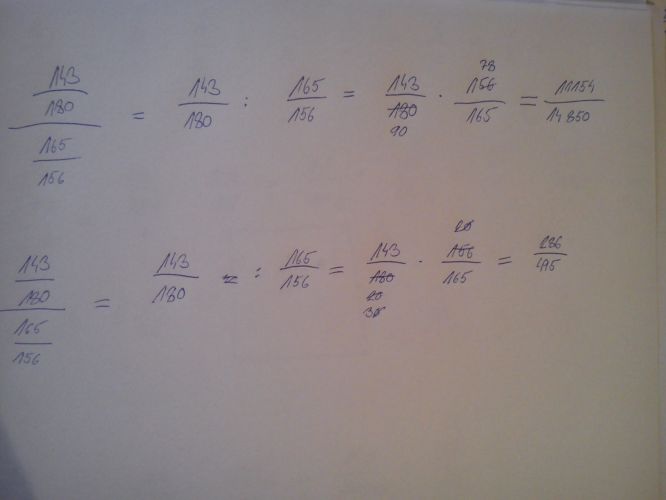 143/180 / 165/156 = 143/180 : 165/156 = 143/180 · 156/165 = 11154/14850
78
90
143/180 / 165/156 = 143/180 : 165/156 = 143/180 · 156/165 = 286/495